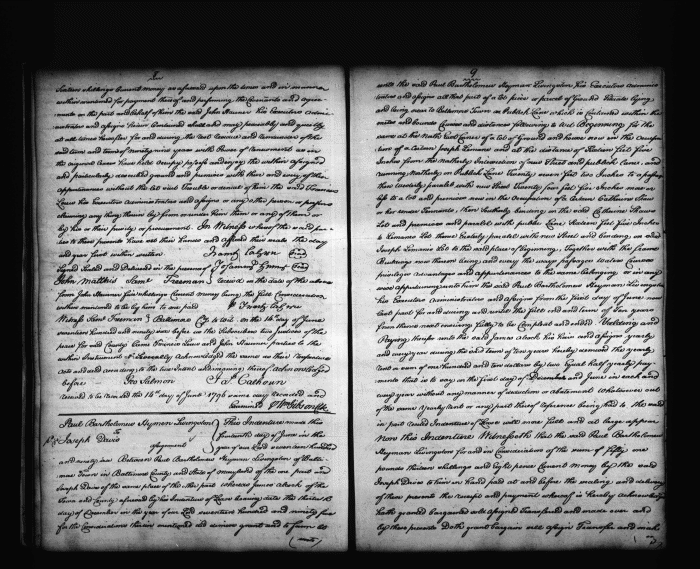 Sixteen shillings Current money as aforesaid upon the terms and in manner
within mentioned for payment thereof and performing the Covenants and agree
ments on the part and behalf of them the said John Stauner his Executors Admin
istrators and assigns Contained shall and may peaceably and quietly
at all times hereafter for and during the rest residue and remainder of the
said term and terms of Ninety nine years with Power of renewment as in
the original Lease have hold occupy possess and enjoy the within assigned
and particularly described ground and premises with them and every of their
appurtenances without the let suit Trouble or denial of him the said Francis
Lewis his Executors Administrators and assigns or any other person or persons
claiming any thing therein by from or under him them or any of them or
by his or their privity or procurement. In Witness whereof the said par
ties to these presents have set their hands and affixed their seals the day
and year first within written
Signed Sealed and Delivered in the presence of
John Matthis Kent Freeman received on the date of the above
from John Stauner five shillings Current money being the full Consideration
within mentioned to be by him to me paid
Witness Kent Freeman Baltimore Cty to wit on the 14th day of June
seventeen hundred and ninety six before us the Subscribers two Justices of the
peace for said County Came Francis Lewis and John Stauner parties to the
within Instrument & severally acknowledged the same as their respective
acts and deed according to the true Intent and meaning thereof acknowledged
before Geo Salmon J. Calhoun
received to be recorded the 14th day of June 1796 same day recorded and
Examined p Wm Gibson Clk
Paul Bartholomew Heyman Livingston This Indenture made this
to Joseph Davis fourteenth day of June in the
assignment year of our Lord seventeen hundred
and ninety six Between Paul Bartholomew Heyman Livingston of Balti
more Town in Baltimore County and State of Maryland of the one part and
Joseph Davis of the same place of the other part whereas James Alcock of the
Town and County aforesaid by his Indenture of Lease bearing date the thirtieth
day of December in the year of our Lord seventeen hundred and ninety five
for the Consideration therein mentioned did demise grant and to farm let
9
unto the said Paul Bartholomew Heyman Livingston his Executors Adminis
trators and assigns all that part of a lot piece or parcel of Ground situate lying
and being near to Baltimore Town on Publick Lane which is Contained within the
metes and bounds Courses and distances following to wit Beginning for the
same at the North East Corner of a lot of Ground and house now in the occupa
tion of a Certain Joseph Lemmon and at the distance of Sixteen feet five
Inches from the Northerly Intersection of new Street and publick Lane and
running Northerly on Publick Lane Twenty seven feet two Inches to a passage
then westerly parallel with new Street Twenty four feet five Inches more or
less to a lot and premises now in the Occupation of a Certain Catharine Shaw
or her under Tennants, then Southerly binding on the said Catharine Shaws
Lot and premises and parallel with the public Lane Sixteen feet five Inches
to Lemmons Lot thence Easterly parallel with new Street and binding on said
Joseph Lemmons Lot to the said place of Beginning, Together with the frame
Buildings now thereon being and every the ways passages water Courses
privileges advantages and appurtenances to the same belonging or in any
wise appertaining unto him the said Paul Bartholomew Heyman Livingston
his Executors Administrators and assigns from the first day of June now
last past for and during and unto the full end and term of Ten years
from thence next ensuing fully to be Compleat and ended Yielding and
Paying therefor unto the said James Alcock his heirs and assigns yearly
and every year during the said term of ten years hereby demised the yearly
rent or sum of one hundred and ten dollars by two Equal half yearly pay
ments that is to say on the first day of December and June in each and
every year without any manner of deduction or abatement whatsoever out
of the same yearly rent or any part thereof reference being had to the said
in part recited Indenture of Lease will more fully and at large appear
Now this Indenture Witnesseth that the said Paul Bartholomew
Heyman Livingston for and in Consideration of the sum of Fifty one
pounds thirteen shillings and eight pence Current money by the said
Joseph Davis to him in hand paid at and before the sealing and delivery
of these presents the receipt and payment whereof is hereby acknowledged
hath granted bargained sold assigned Transferred and made over and
by these presents Doth grant bargain sell assign Transfer and make